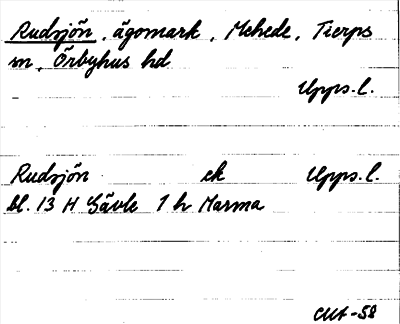 Rudsjön, ägomark, Mehede, Tierps
sn, Örbyhus hd
Upps.l.
Rudsjön ek Upps.l.
bl. 13 H Gävle 1 h Marma
CUt -58